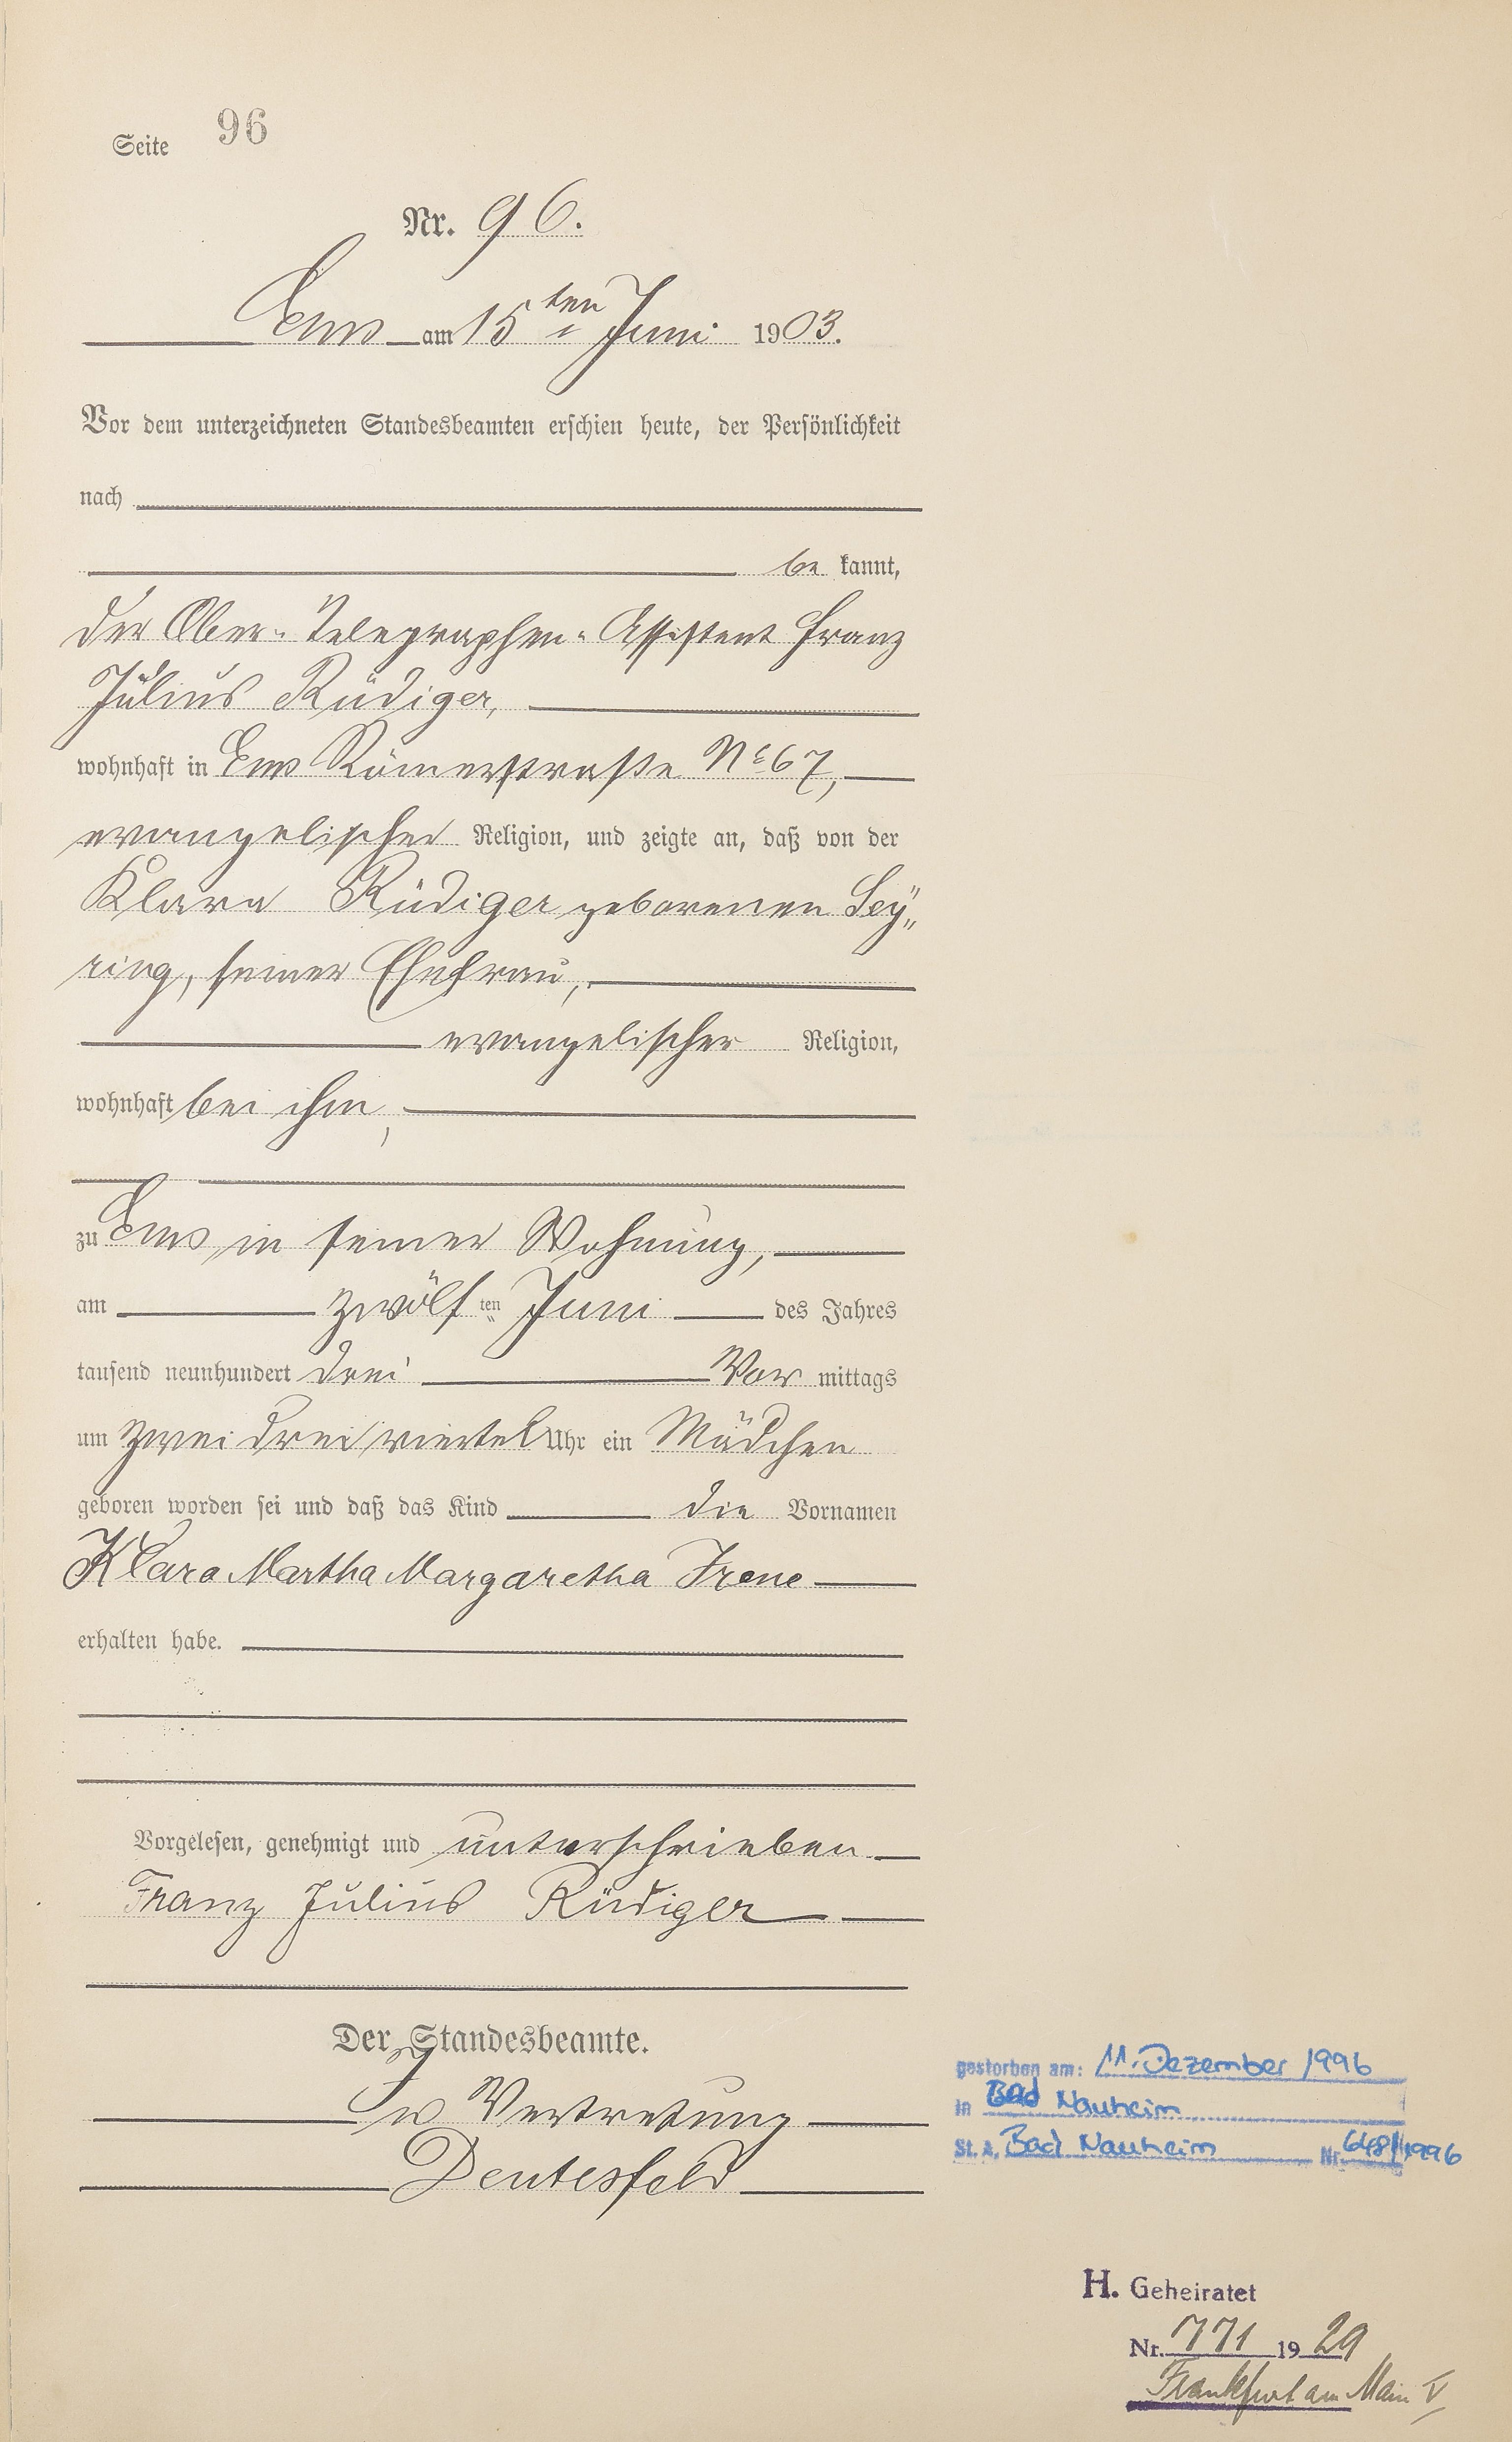 Seite 96
Nr. 96.
Ems am 15ten Juni 1903.
Vor dem unterzeichneten Standesbeamten erschien heute, der Persönlichkeit
nach
be kannt,
der Ober-Telegraphen-Assistent Franz
Julius Rüdiger,
wohnhaft in Ems Römerstraße No 67,
evangelischer Religion, und zeigte an, daß von der
Klara Rüdiger geborenen Sey„
ring, seiner Ehefrau,
evangelischer Religion,
wohnhaft bei ihm,
zu Ems in seiner Wohnung,
am zwölf ten Juni des Jahres
tausend neunhundert drei Vor mittags
um zwei drei viertel Uhr ein Mädchen
geboren worden sei und daß das Kind die Vornamen
Klara Martha Margaretha Irene
erhalten habe.
Vorgelesen, genehmigt und unterschrieben
Franz Julius Rüdiger
Der Standesbeamte.
In Vertretung
Deutesfeld
gestorben am: 11. Dezember 1996
in Bad Nauheim
St. A. Bad Nauheim Nr. 648/1996
H. Geheiratet
Nr. 771 1929
Frankfurt am Main V